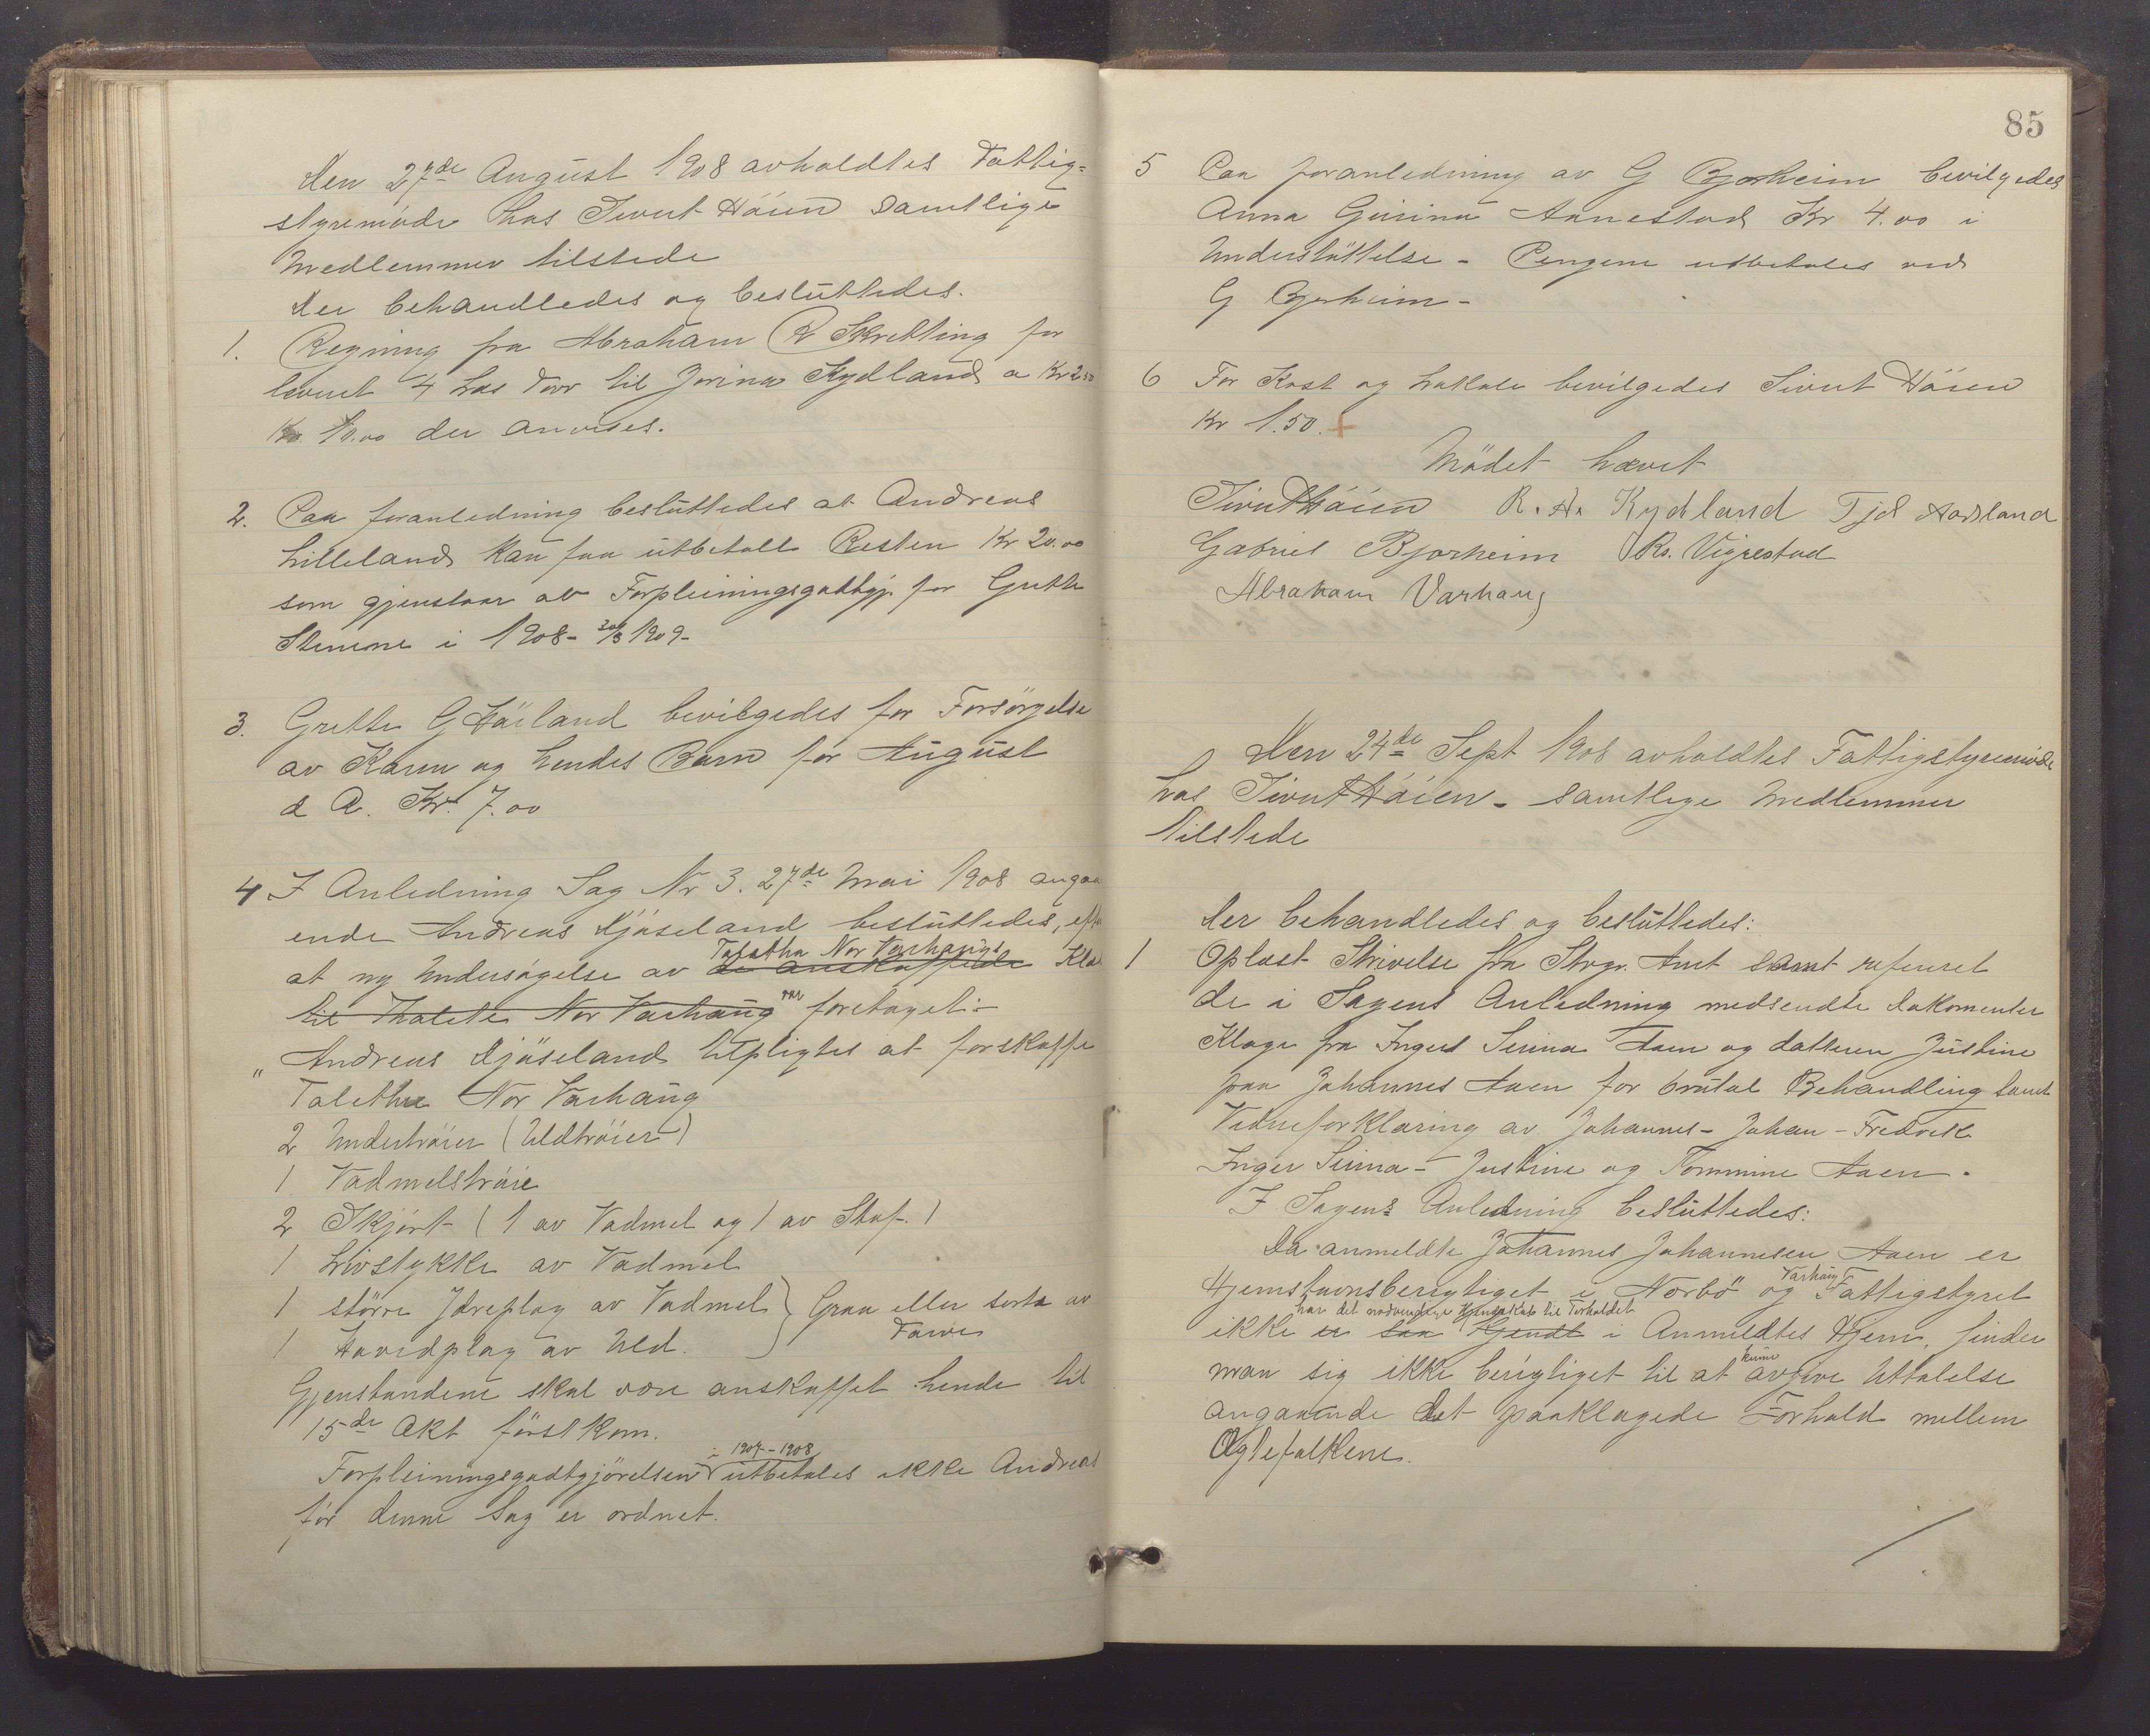 Den 27de August 1908 avholdtes Fattig=
styremöde hos Sivert Höien samtlige
Medlemmer tilstede
Der behandledes og besluttedes.
1. Regning fra Abraham R Skretting for
levert 4 Las Torv til Jorina Kydland a Kr 2.50
Kr. 10.00 der anvises.
2. Paa foranledning besluttedes at Andreas
Lilleland kan faa utbetalt Resten Kr 20.00
som gjenstaar av Forpleiningsgodtgj. for Grethe
Stenene i 1908 - 30/3 1909 -
3. Grethe G Höiland bevilgedes for Forsörgelse
av Karen og hendes Barn for August
d A. Kr. 7.00
4 I Anledning Sag Nr 3. 27de Mai 1908 angaa
ende Andreas Njöseland besluttedes, efter
Talethe Nor Varhaugs
at ny Undersögelse av de anskaffede Klæ
til Thalete Nor Varhaug var foretaget: -
„ Andreas Njöseland tilpligtes at forskaffe
Talethe Nor Varhaug
2 Undertröier (Uldtröier)
1 Vadmelströie
2 Skjört (1 av Vadmel og 1 av Stof.)
1 Livstykke av Vadmel
1 större Ydreplag av Vadmel } Graa eller sorte av
1 Hovedplag av Uld. Farve
Gjenstandene skal være anskaffet hende til
15de Okt förstkom.
i 1907 - 1908
Forpleiningsgodtgjörelsen utbetales ikke Andreas
för denne Sag er ordnet.
85
5 Paa foranledning av G Bjorheim bevilgedes
Anna Gurina Aanestad Kr 4.00 i
Understöttelse - Pengene utbetales ved
G Bjorheim -
6 For Kost og Lokale bevilgedes Sivert Höien
Kr 1.50.
Mödet hævet
Sivert Höien R. A. Kydland Tjel Aadland
Gabriel Bjorheim Rs. Vigrestad
Abraham Varhaug
Den 24de Sept 1908 avholdtes Fattigstyremöde
hos Sivert Höien - samtlige Medlemmer
tilstede
Der behandledes og besluttedes:
1 Oplæst Skrivelse fra Stvgr. Amt samt refereret
de i Sagens Anledning medsendte Dokomenter
Klage fra Inger Serina Aaen og datteren Justine
paa Johannes Aaen for brutal Behandling samt
Vidneforklaring av Johannes - Johan - Fredrik
Inger Serina - Justine og Tommine Aaen.
I Sagens Anledning besluttedes:
Da anmeldte Johannes Johannesen Aaen er
Varhaug
Hjemstavnsberegtiget i Nærbö og Fattigstyret
har det nødvendige Kjendskab til Forholdet
ikke er saa kjendt i Anmeldtes Hjem, finder
kunne
man sig ikke berigtiget til at avgive Uttalelse
angaaende det paaklagede Forhold mellem
Ægtefolkene.